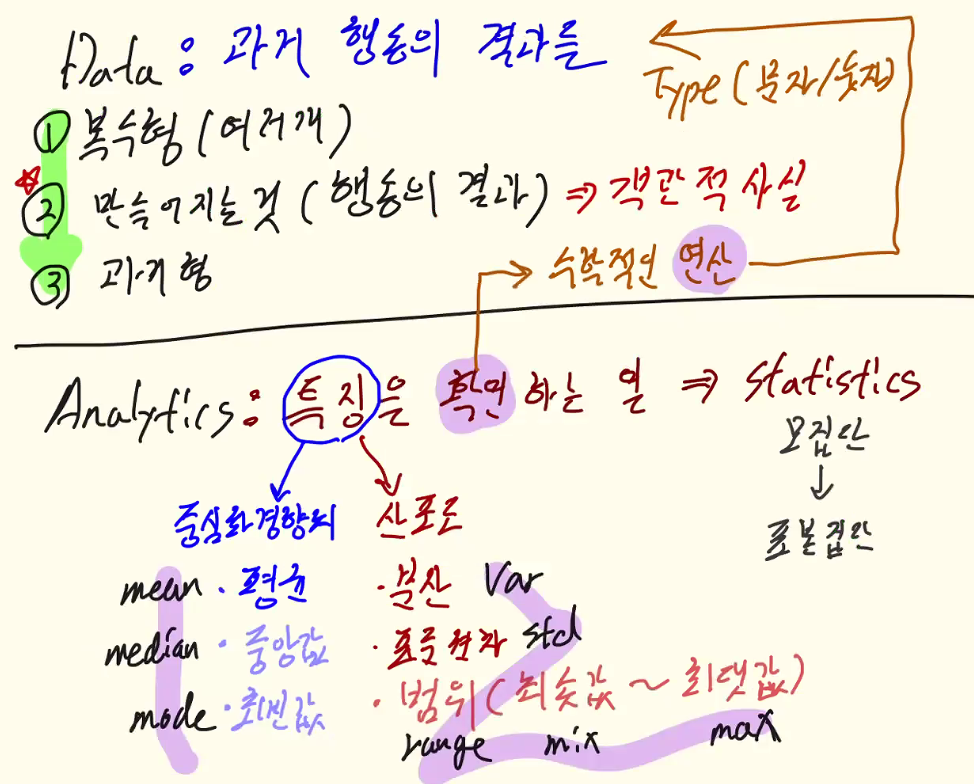 Data : 과거 행동의 결과들
Type (문자/숫자)
① 복수형 (여러개)
② 만들어지는 것 (행동의 결과) ⇒ 객관적 사실
③ 과거형
수학적인 연산
Analytics : 특징을 확인하는 일 ⇒ statistics
모집단
↓
표본집단
중심화경향치 산포도
mean · 평균 · 분산 Var
median · 중앙값 · 표준편차 std
mode · 최빈값 · 범위 (최솟값 ~ 최댓값)
range mix max